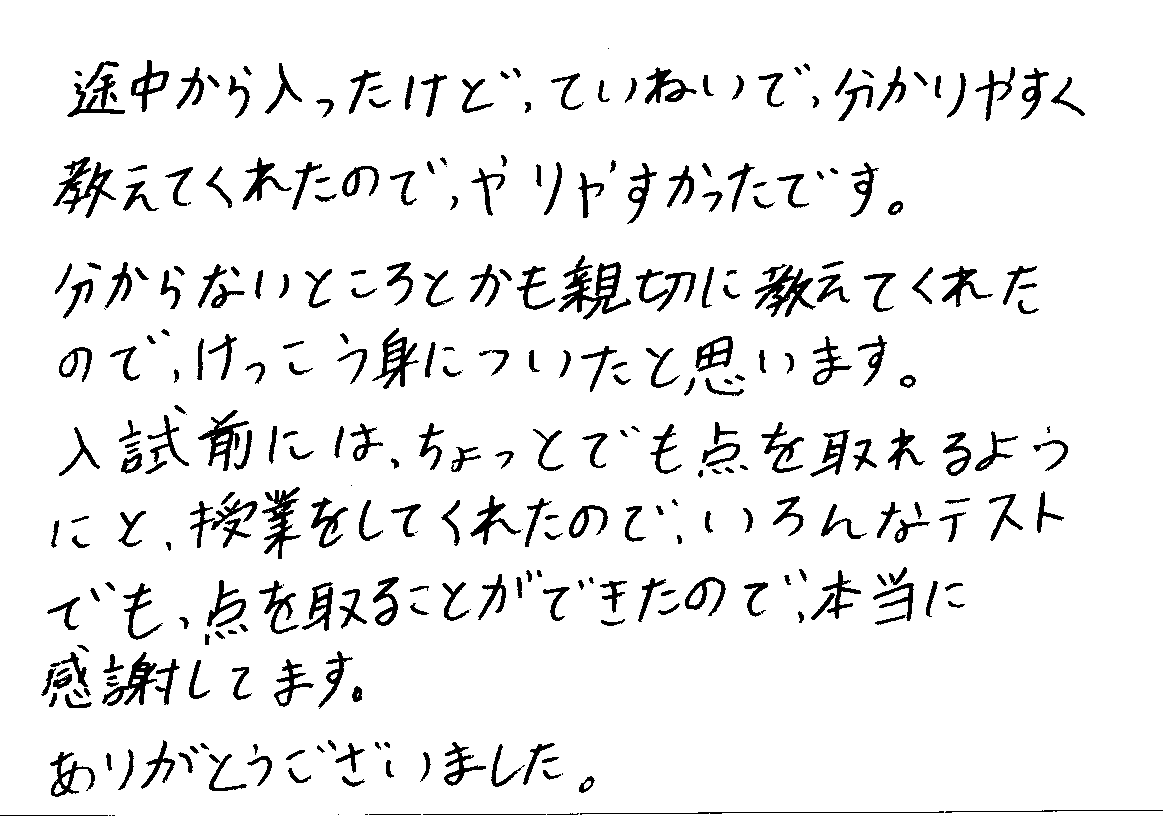 途中から入ったけど、ていねいで、分かりやすく
教えてくれたので、やりやすかったです。
分からないところとかも親切に教えてくれた
ので、けっこう身についたと思います。
入試前には、ちょっとでも点を取れるよう
にと、授業をしてくれたので、いろんなテスト
でも、点を取ることができたので、本当に
感謝してます。
ありがとうございました。